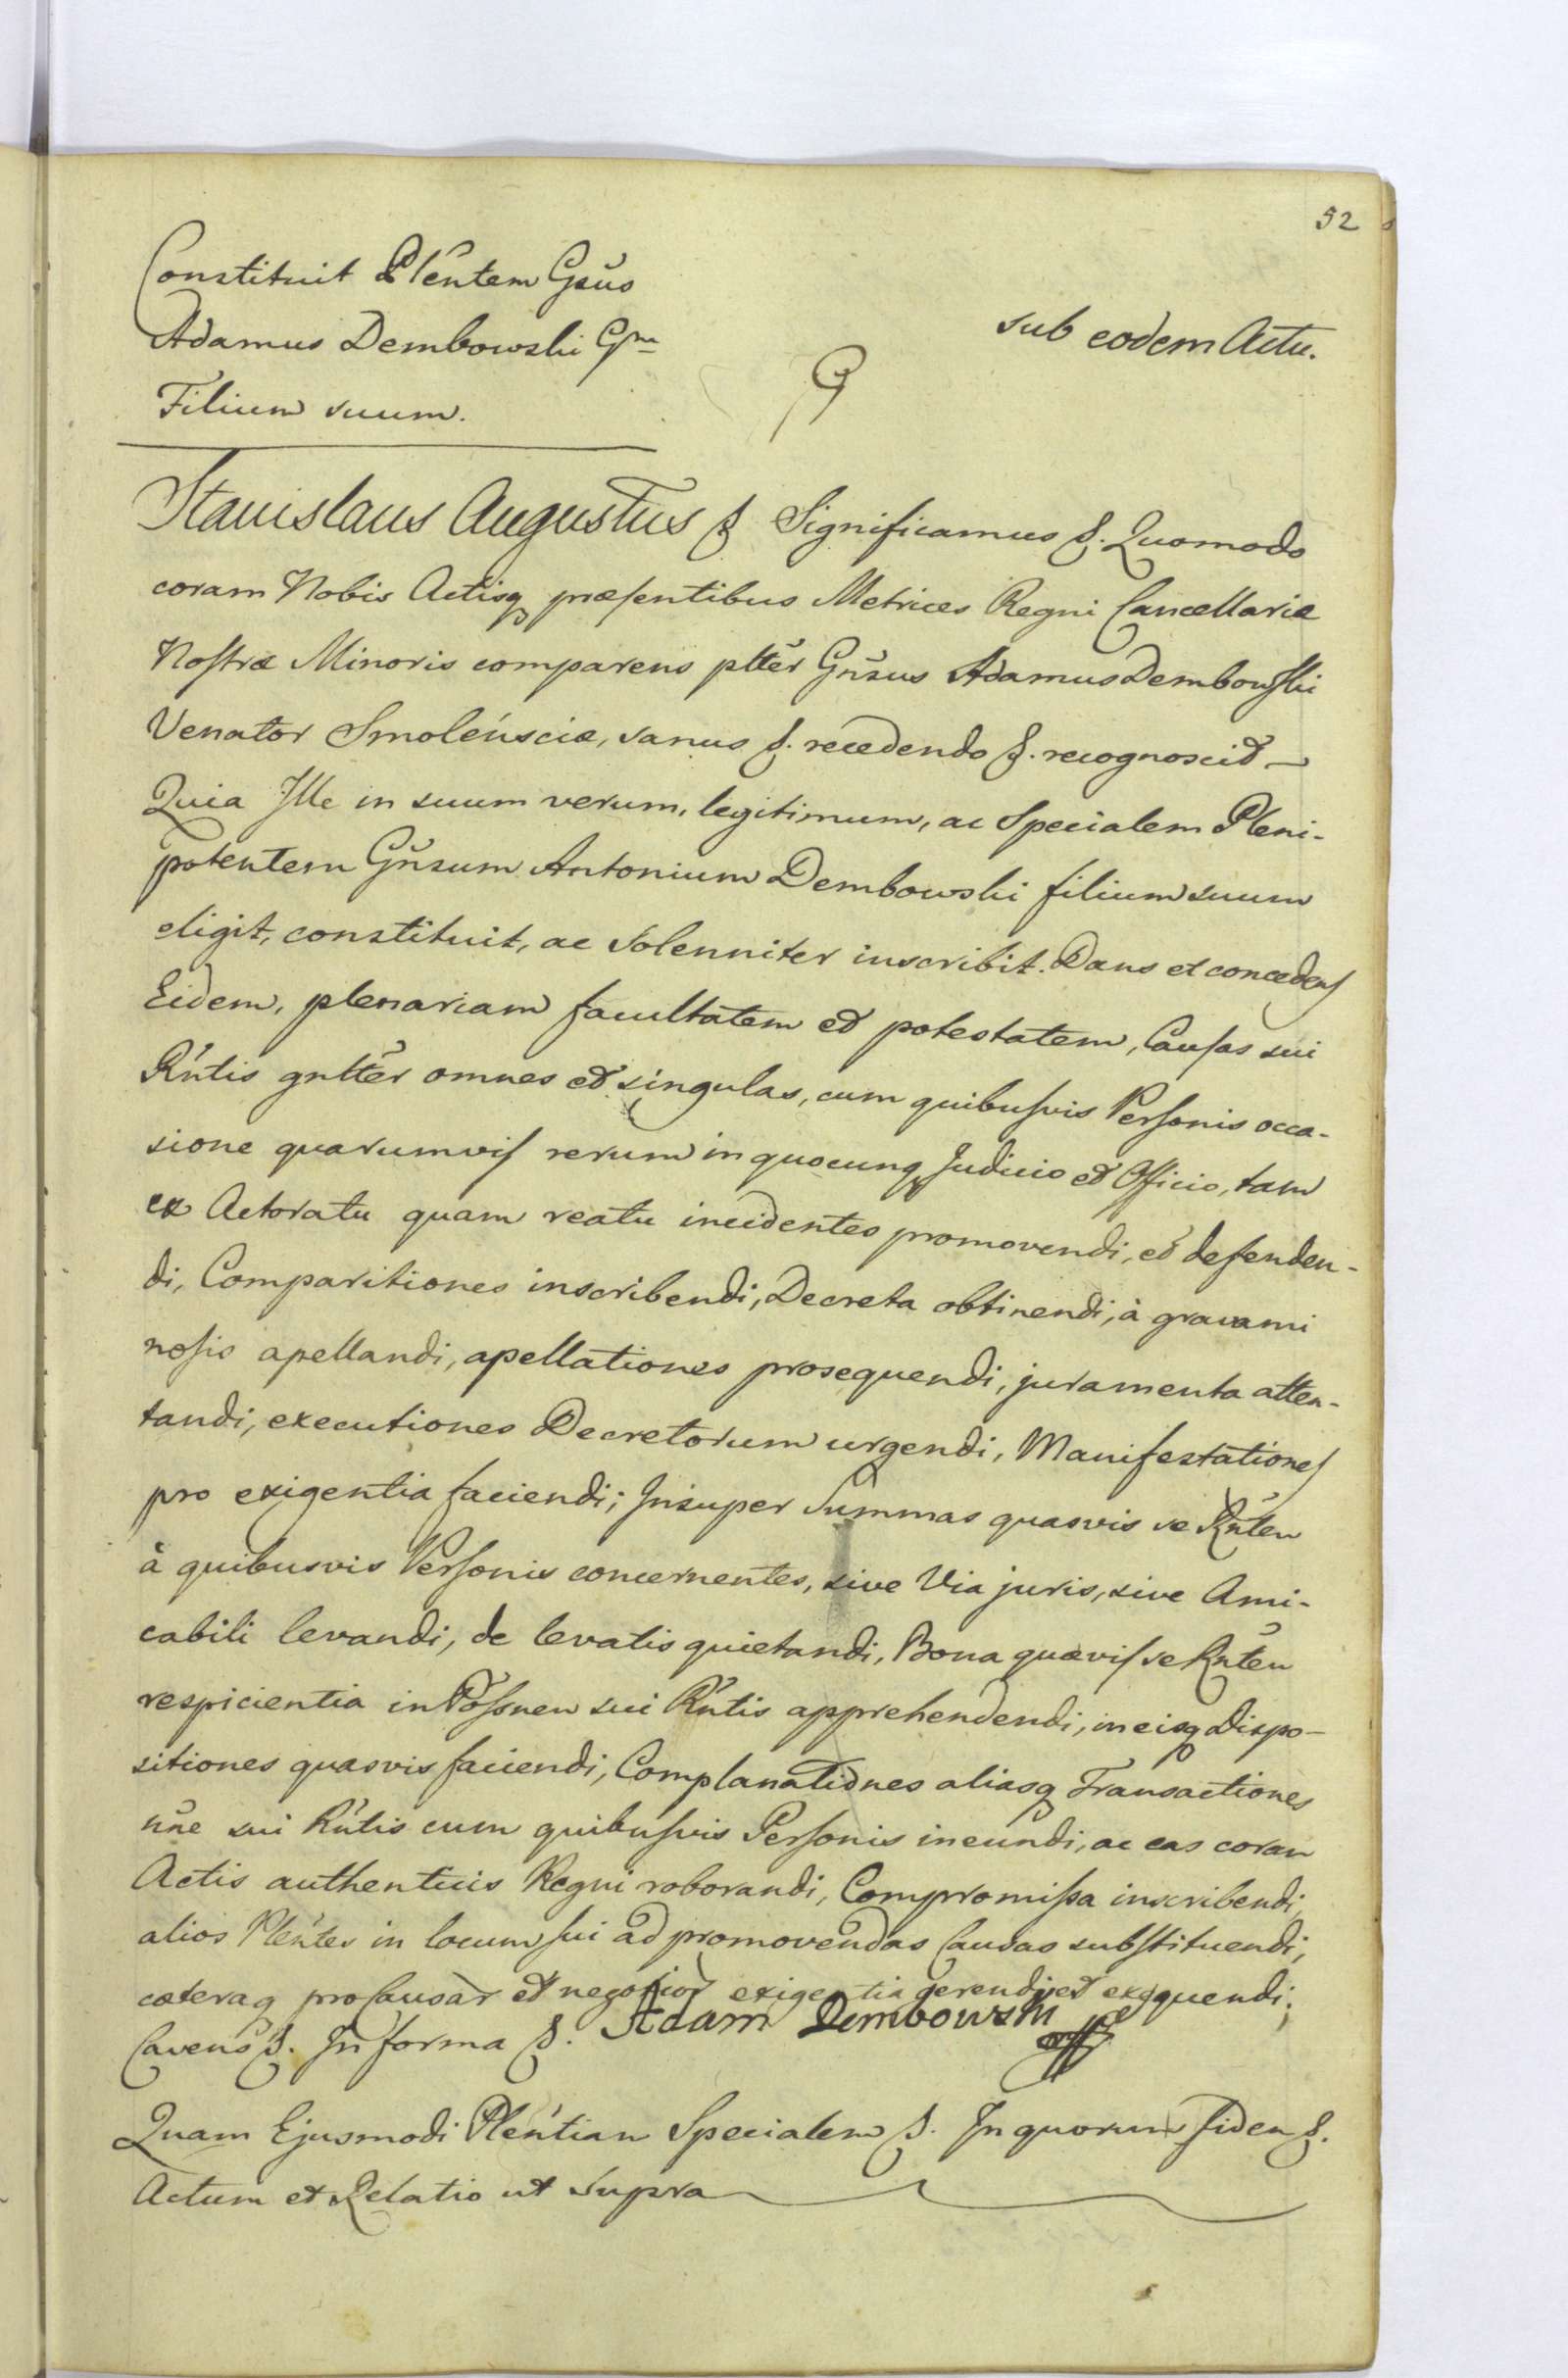 52
Constituit Plentem Gsus
Adamus Dembowski Gm
Filium suum.
sub eodem Actu.
Stanislaus Augustus &. Significamus &. Quomodo
coram Nobis Actisq præsentibus Metrices Regni Cancellariæ
Nostræ Minoris comparens pltter Gnsus Adamus Dembowski
Venator Smolénsciæ, sanus &. recedendo &. recognoscit —
Quia Ille in suum verum, legitimum, ac Specialem Pleni-
potentem Gnsum Antonium Dembowski filium suum
eligit, constituit, ac solenniter inscribit. Dans et concedens
Eidem, plenariam facultatem et potestatem, Causas sui
Rntis gnltter omnes et singulas, cum quibusvis Personis occa-
sione quarumvis rerum in quocunq Judicio et Officio, tam
ex Actoratu quam reatu incidentes promovendi, et defenden-
di, Comparitiones inscribendi, Decreta obtinendi, à gravami
nosis apellandi, apellationes prosequendi, juramenta atten-
tandi, executiones Decretorum urgendi, Manifestationes
pro exigentia faciendi; Insuper Summas quasvis se Rnten
à quibusvis Personis concernentes, sive Via juris, sive Ami-
cabili levandi, de levatis quietandi, Bona quævis se Rnten
respicientia in Possnen sui Rntis apprehendendi, in eisq dispo-
sitiones quasvis faciendi, Complanationes aliasq Transactiones
nne sui Rntis cum quibusvis Personis ineundi, ac eas coram
Actis authenticis Regni roborandi, Compromissa inscribendi,
alios Plentes in locum sui ad promovendas Causas substituendi,
cæteraq pro Causar et negotior exigentia gerendi et exequendi;
Cavens &. In forma &. Adam Dembowski
Quam Ejusmodi Plentian Specialem &. In quorum fidem &.
Actum et Relatio ut supra